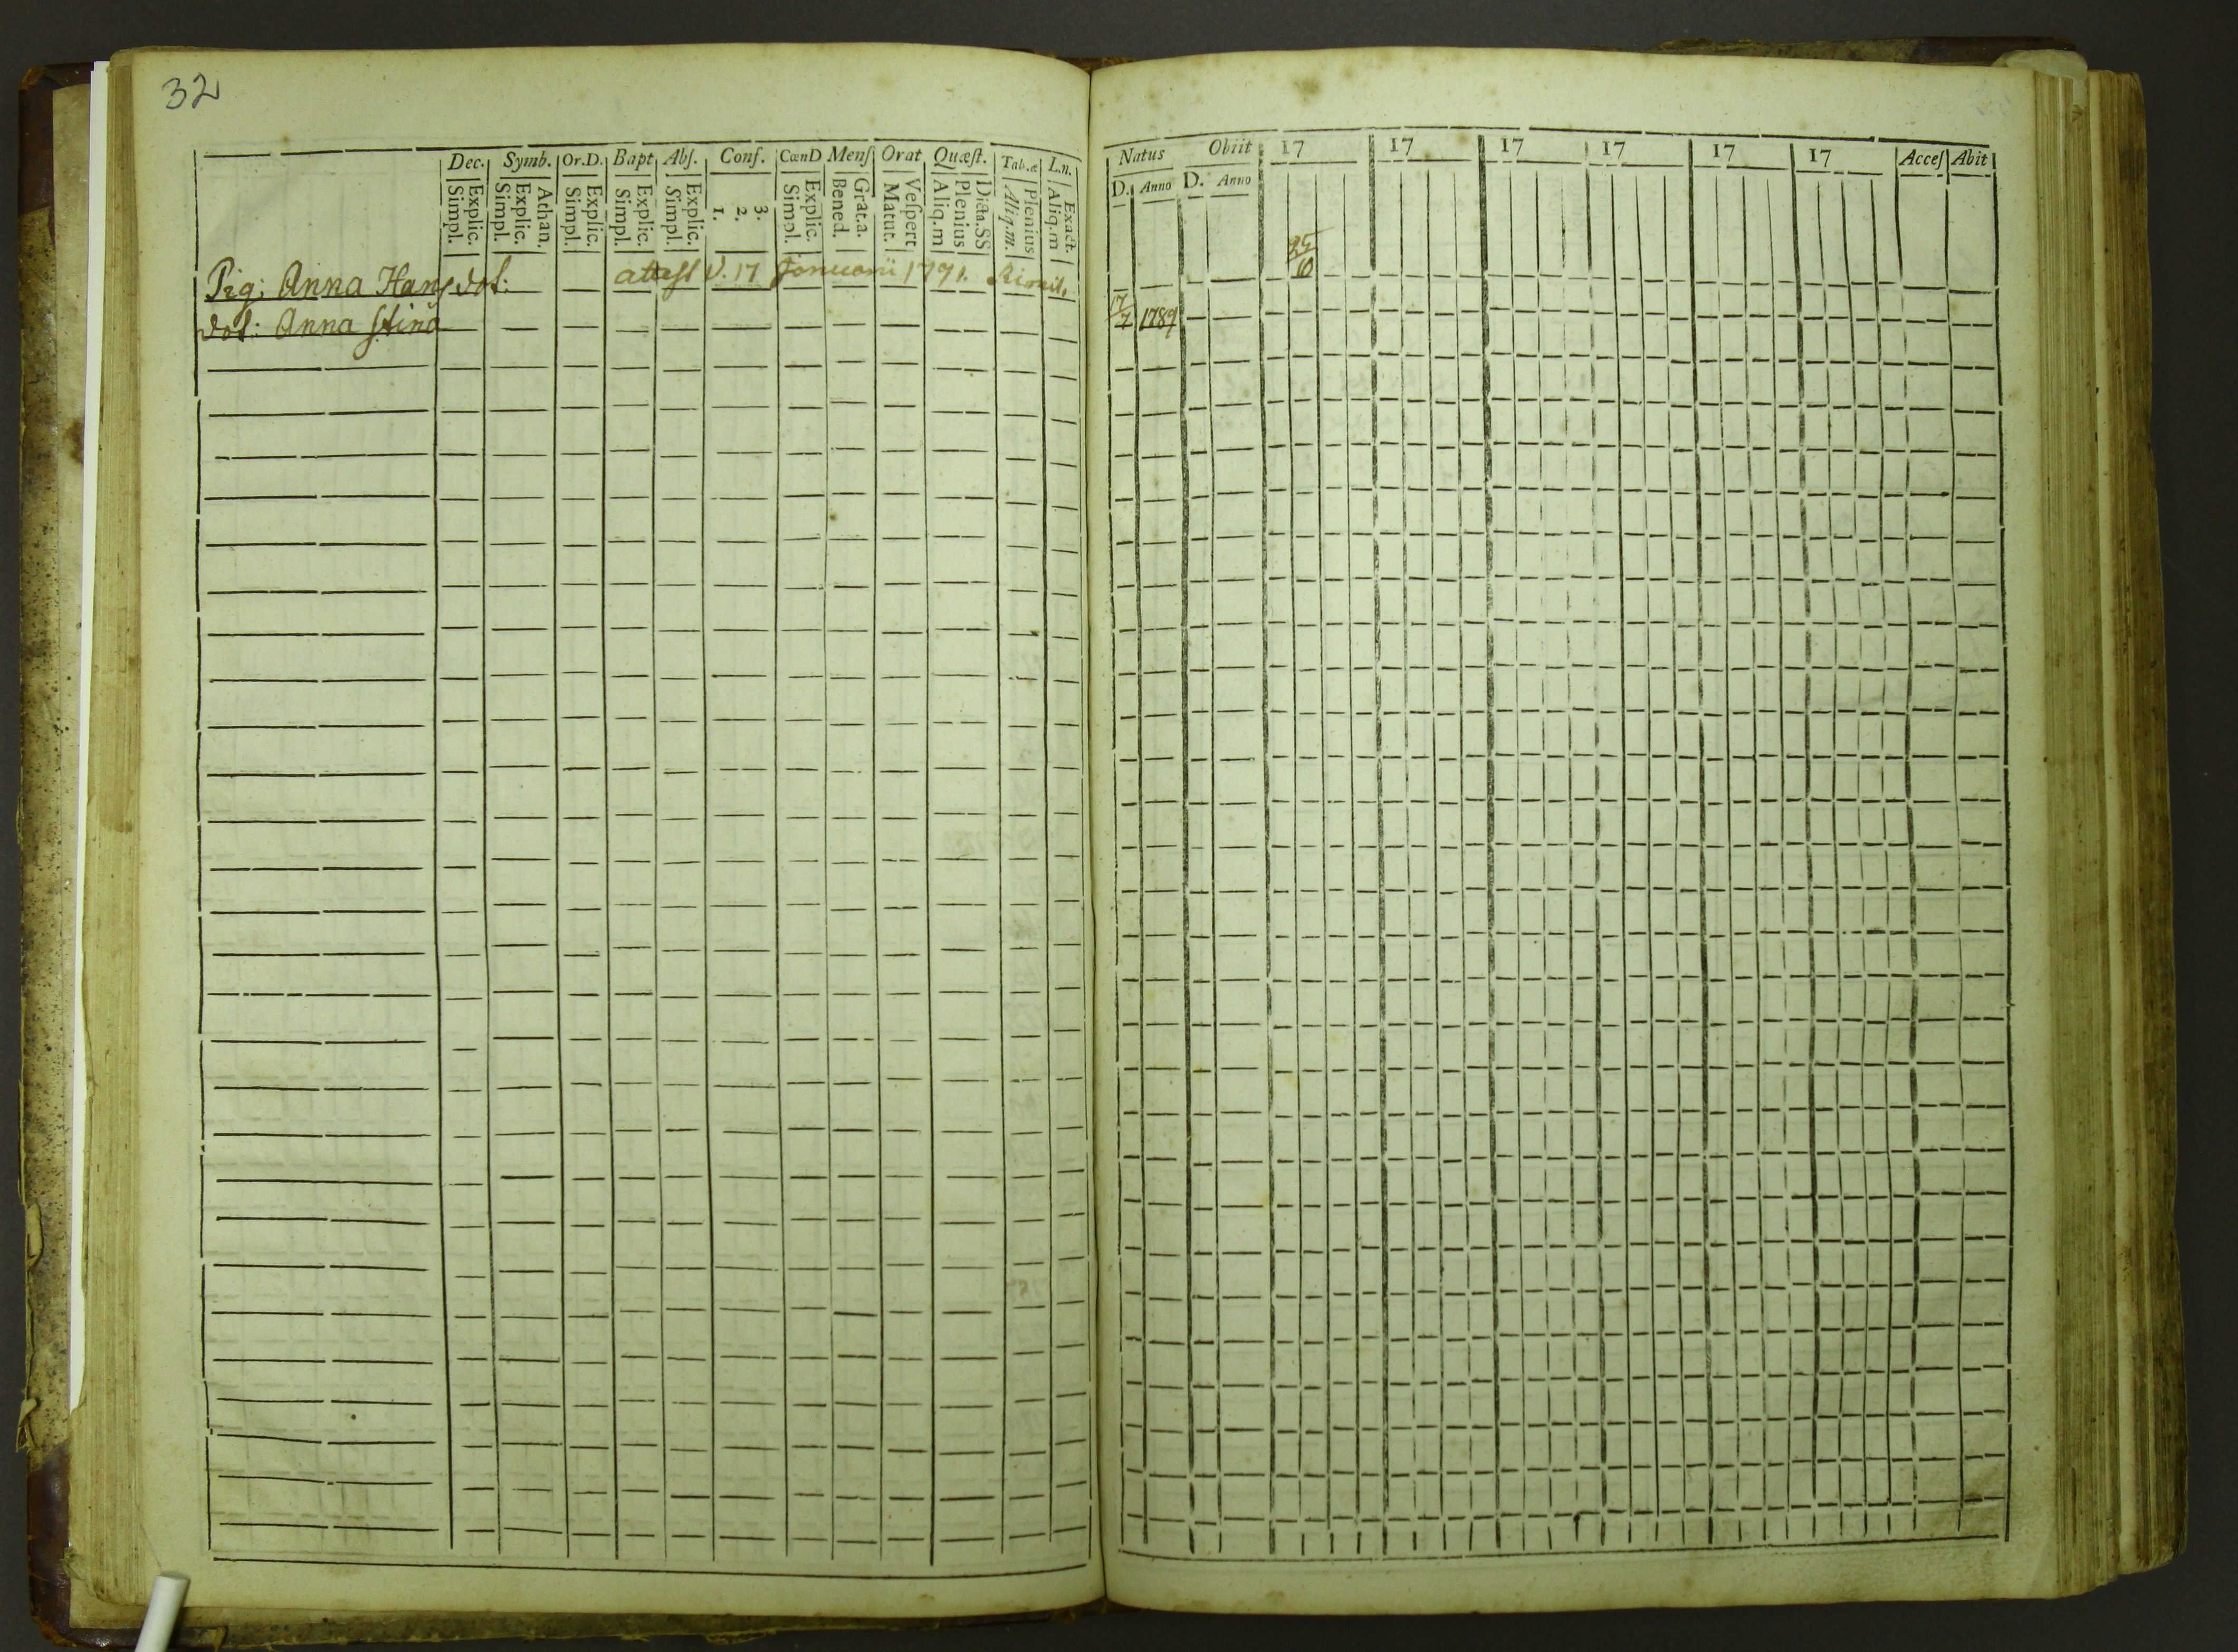 32
Dec. Symb. Or.D. Bapt Abſ. Conf. CœnD Menſ Orat Quæſt. Tab.æ L.n.
Explic. Simpl. Athan. Explic. Simpl. Explic. Simpl. Explic. Simpl. Explic. Simpl. 3. 2. 1. Explic. Simpl. Grat.a. Bened. Veſpert Matut. Dicta.SS Plenius Aliq.m Plenius Aliq.m. Exact. Aliq.m
Pig: Anna Hansdot: attest d. 17 Januarii 1791.
dot: Anna Stina
Natus Obiit 17 17 17 17 17 17 Acceſ Abit
D. Anno D. Anno
25/10
17/7 1789